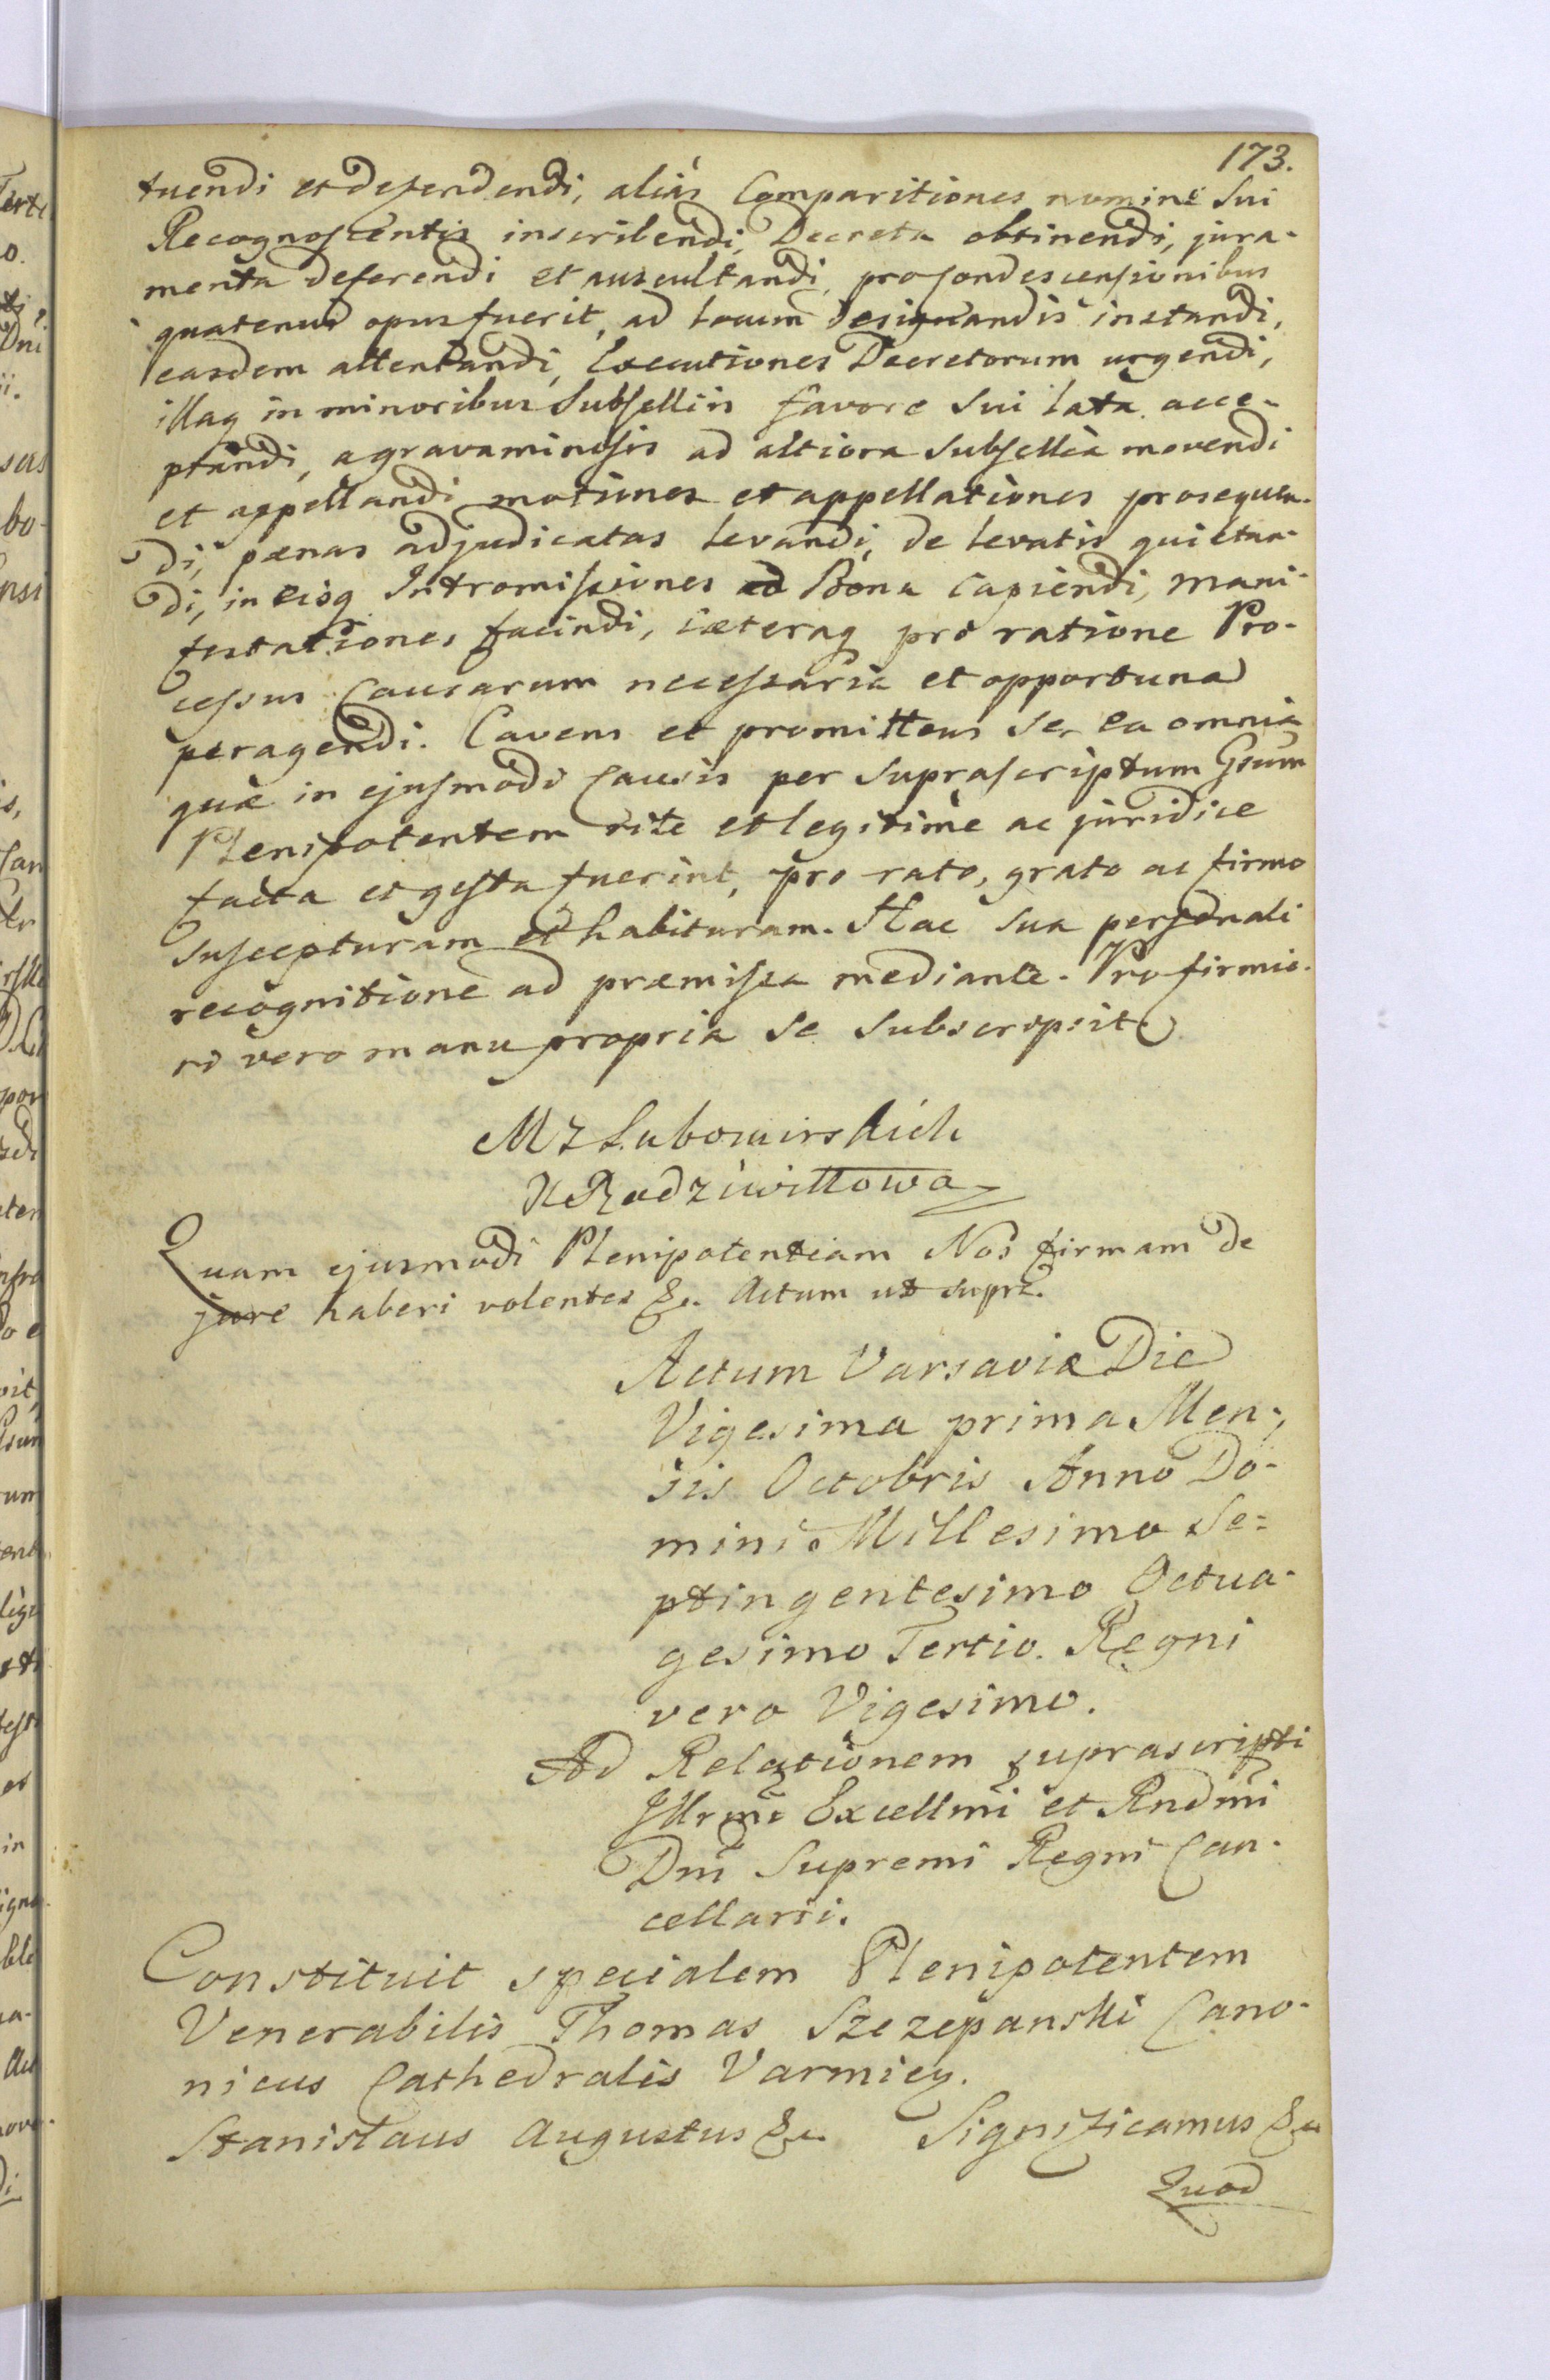 173.
tuendi et defendendi, aliàs Comparitiones nomine Sui
Recognoscentis inscribendi, Decreta obtinendi, jura-
menta deferendi et auscultandi, pro condescensionibus
quatenus opus fuerit, ad locum designandis instandi,
easdem attentandi, Executiones Decretorum urgendi,
illaq in minoribus Subselliis favore Sui lata acce-
ptandi, a gravaminosis ad altiora Subsellia movendi
et appellandi motiones et appellationes prosequen-
di, pænas adjudicatas levandi, de levatis quietan-
di, in eisq Intromissiones ad Bona capiendi, mani-
festationes faciendi, cæteraq pro ratione Pro-
cessus Causarum necessaria et opportuna
peragendi. Cavens et promittens Se, ea omnia
quæ in ejusmodi Causis per Suprascriptum Gsum
Plenipotentem rite et legitime ac juridice
facta et gesta fuerint, pro rato, grato ac firmo
suscepturam et habituram. Hac Sua personali
recognitione ad præmissa mediante. Pro firmio-
ri vero manu propria Se Subscripsit
M Z Lubomirskich
X Radziwiłłowa
Quam ejusmodi Plenipotentiam Nos firmam de
jure haberi volentes &c. Actum ut supra.
Actum Varsaviæ Die
Vigesima prima Men-
sis Octobris Anno Do-
mini Millesimo Se-
ptingentesimo Octua-
gesimo Tertio. Regni
vero Vigesimo.
Ad Relationem suprascripti
Illrmi Excellmi et Rndmi
Dni Supremi Regni Can-
cellarii.
Constituit specialem Plenipotentem
Venerabilis Thomas Szczepanski Cano-
nicus Cathedralis Varmien.
Stanislaus Augustus &c. Significamus &c
Quod